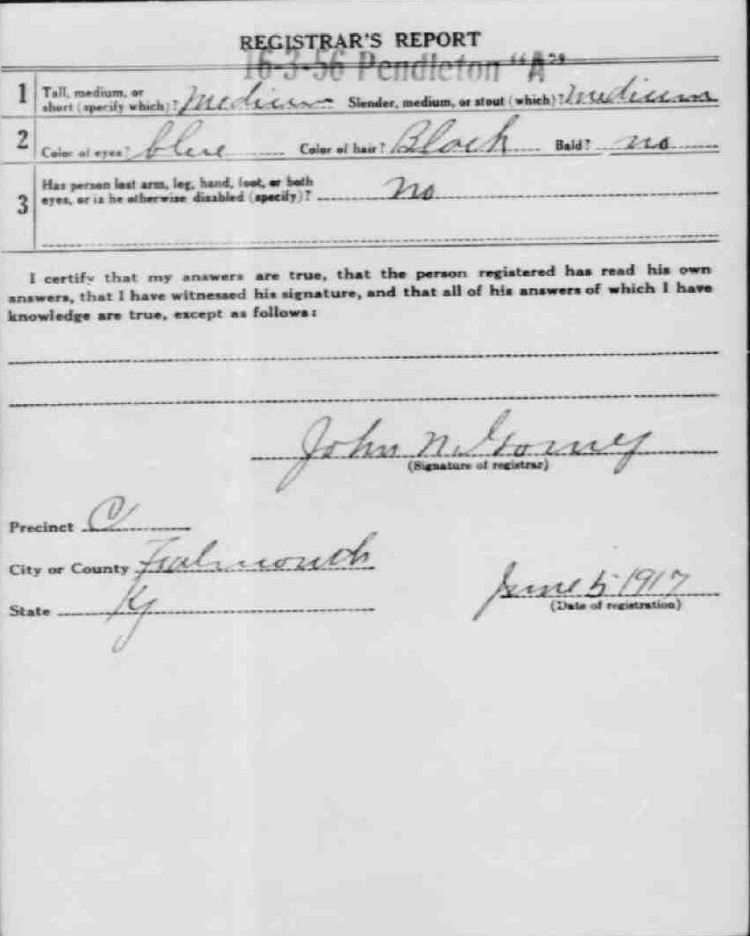 REGISTRAR'S REPORT
16-3-56 Pendleton "A"
1 Tall, medium, or short (specify which)? Medium Slender, medium, or stout (which)? Medium
2 Color of eyes? blue Color of hair? Black Bald? no
3 Has person lost arm, leg, hand, foot, or both
eyes, or is he otherwise disabled (specify)? no
I certify that my answers are true, that the person registered has read his own
answers, that I have witnessed his signature, and that all of his answers of which I have
knowledge are true, except as follows:
John N.
(Signature of registrar)
Precinct C
City or County Falmouth
State Ky
June 5 1917
(Date of registration)